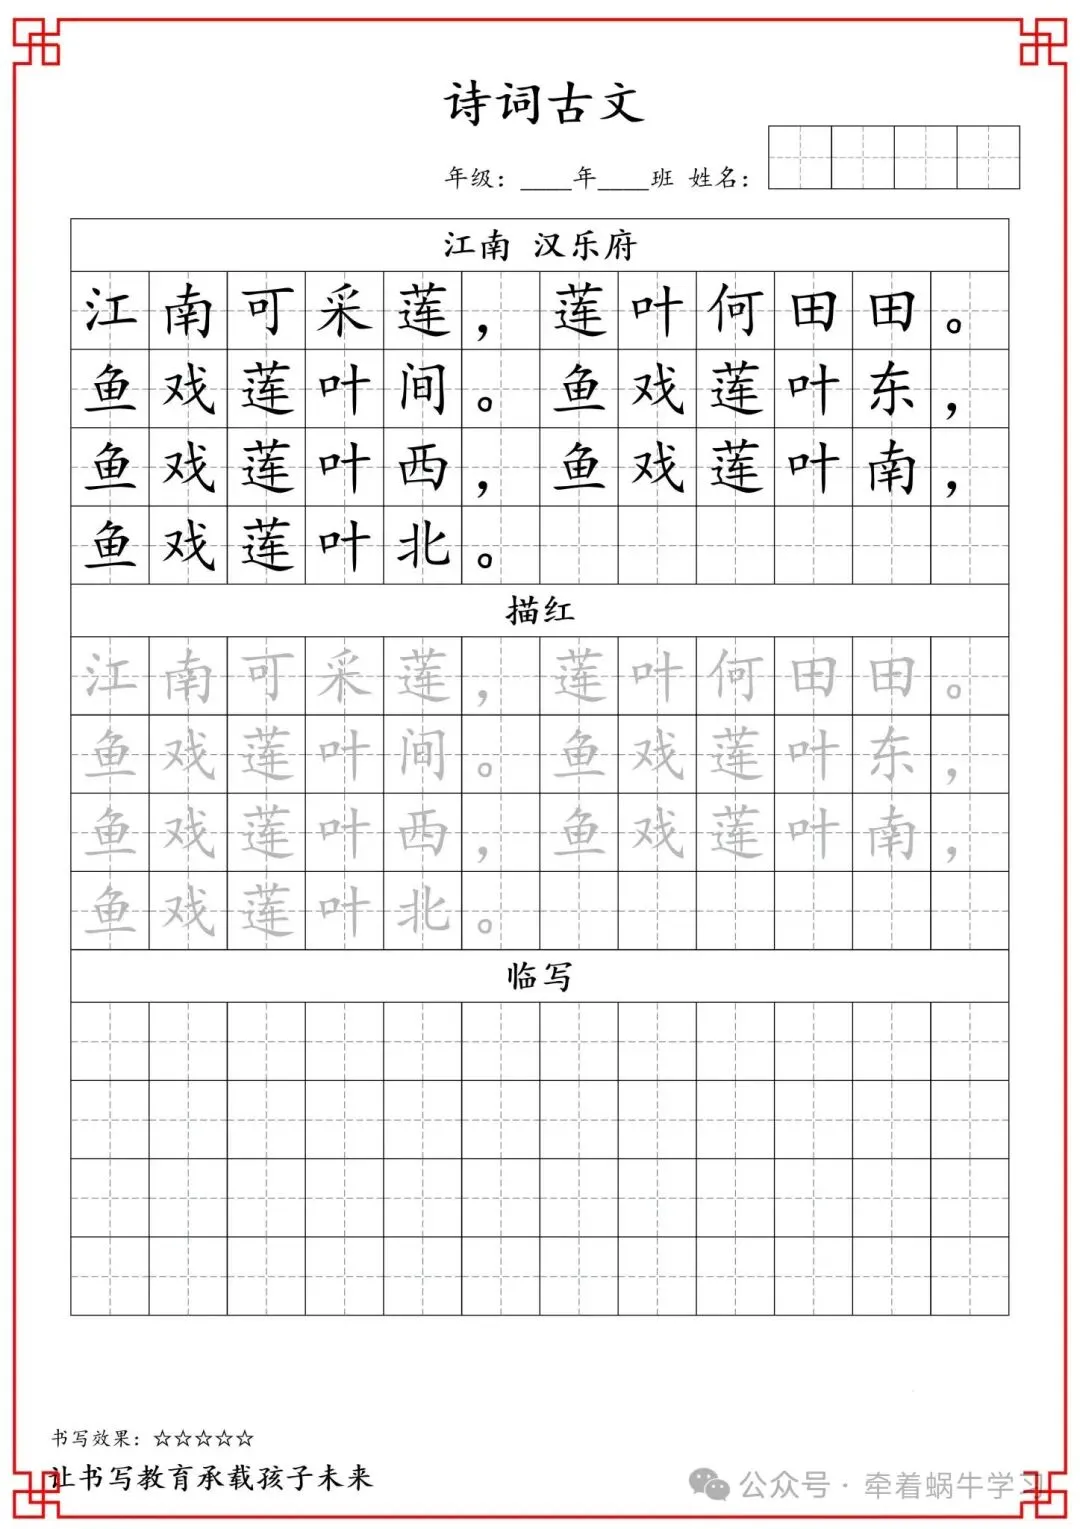 诗词古文
年级：____年____班 姓名：
江南 汉乐府
江南可采莲，莲叶何田田。
鱼戏莲叶间。鱼戏莲叶东，
鱼戏莲叶西，鱼戏莲叶南，
鱼戏莲叶北。
描红
江南可采莲，莲叶何田田。
鱼戏莲叶间。鱼戏莲叶东，
鱼戏莲叶西，鱼戏莲叶南，
鱼戏莲叶北。
临写
书写效果：☆☆☆☆☆
让书写教育承载孩子未来
公众号·牵着蜗牛学习